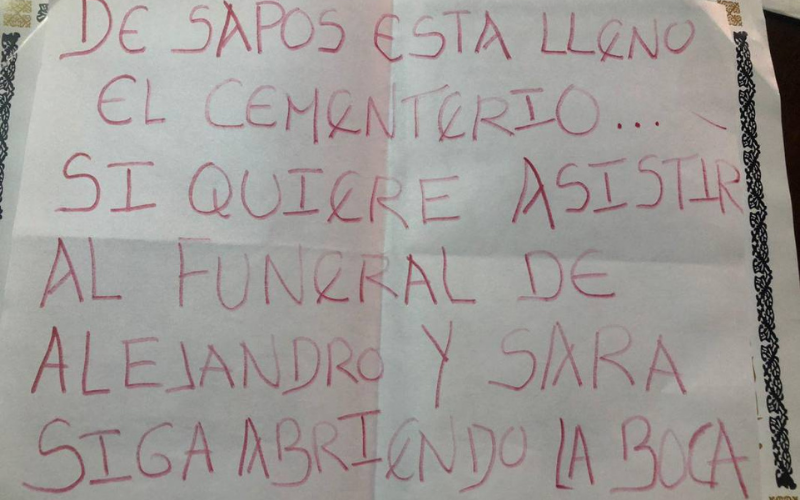 DE SAPOS ESTA LLENO
EL CEMENTERIO...
SI QUIERE ASISTIR
AL FUNERAL DE
ALEJANDRO Y SARA
SIGA ABRIENDO LA BOCA